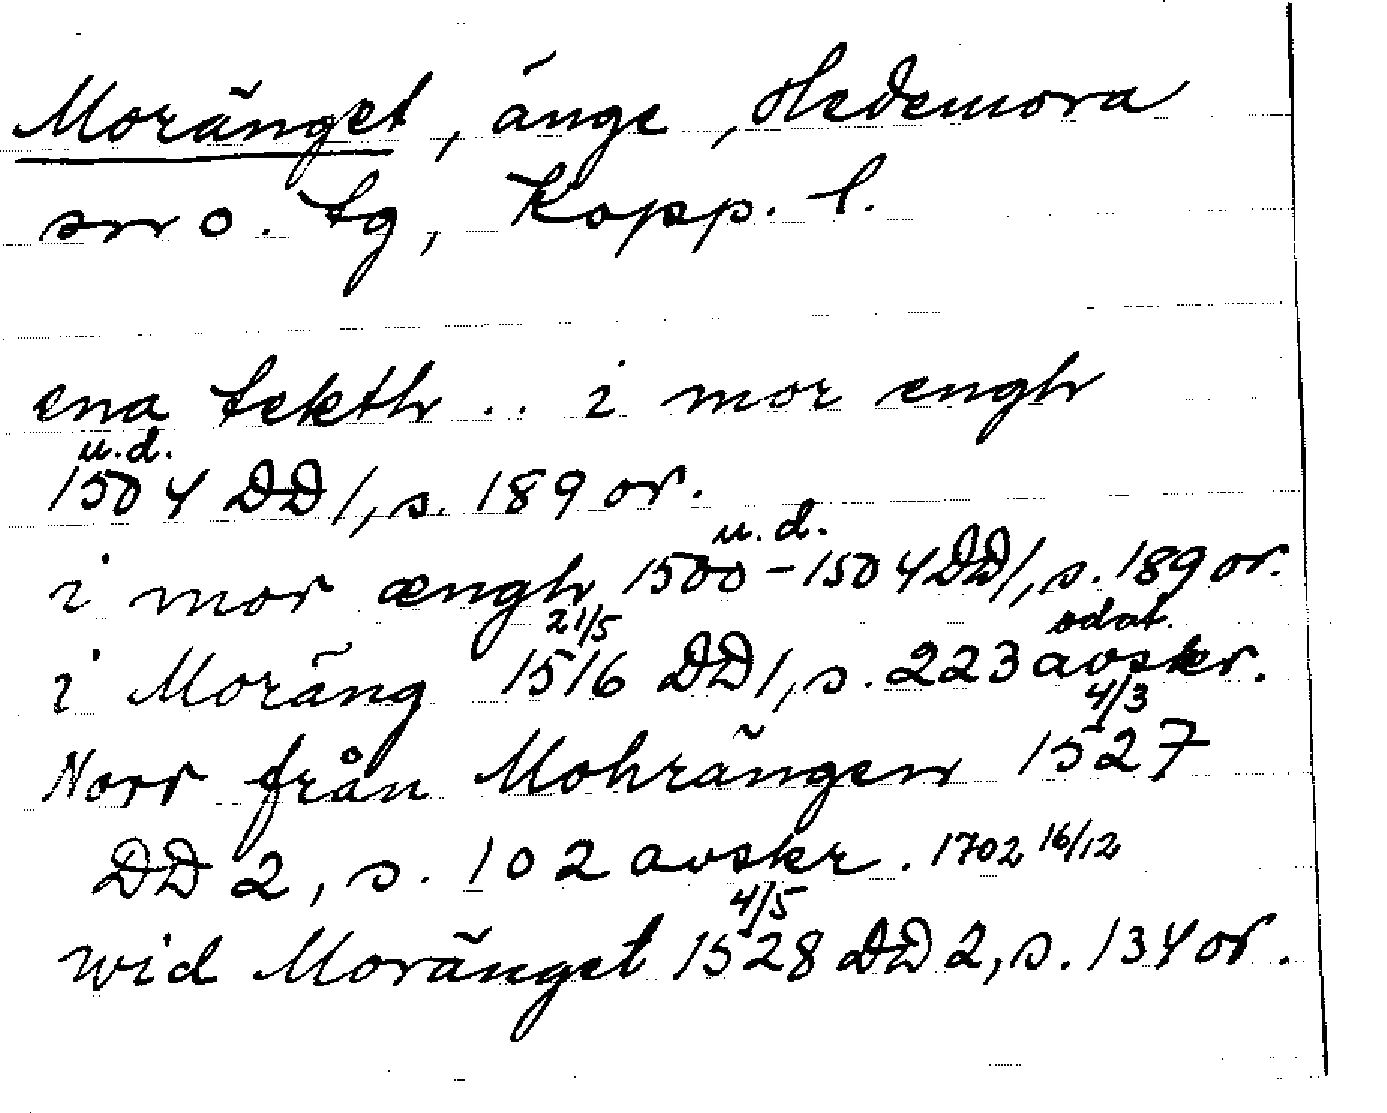 Moränget, änge, Hedemora
sn o. tg, Kopp. l.
ena tekth .. i mor engh
u.d.
1504 DD 1, s. 189 or.
u.d.
i mor ængh 1500-1504 DD 1, s. 189 or.
21/5 odat.
i Moräng 1516 DD 1, s. 223 avskr.
4/3
Norr från Mohrängen 1527
DD 2, s. 102 avskr. 1702 16/12
4/5
wid Moränget 1528 DD 2, s. 134 or.